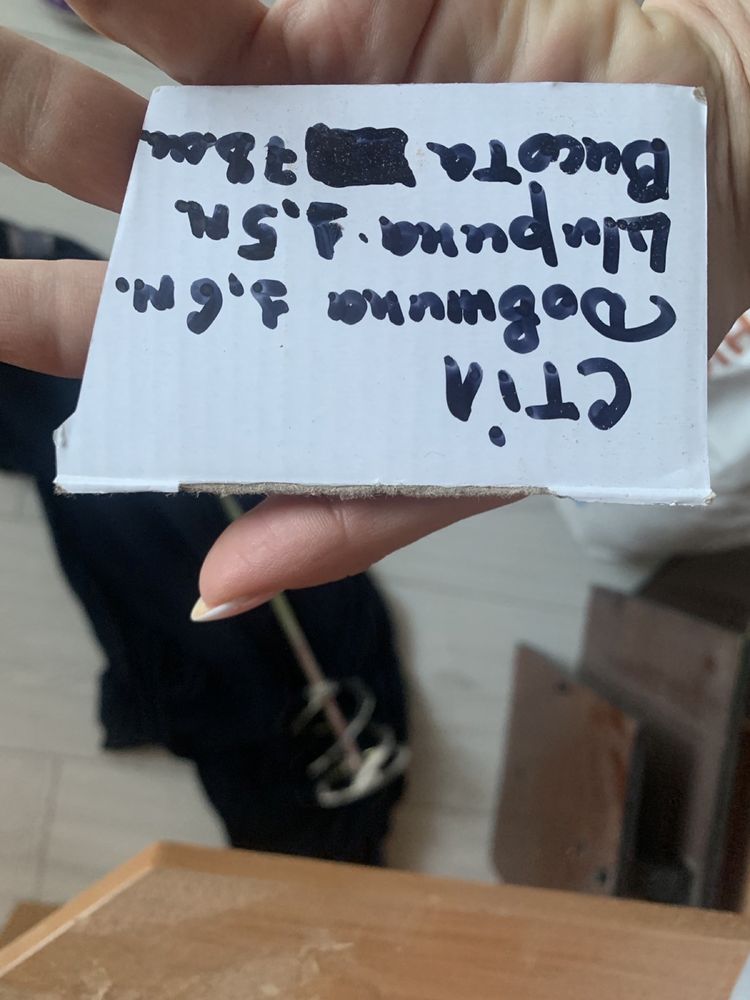 Стіл
Довжина 1.6м.
Ширина. 1.5м
Висота 78см